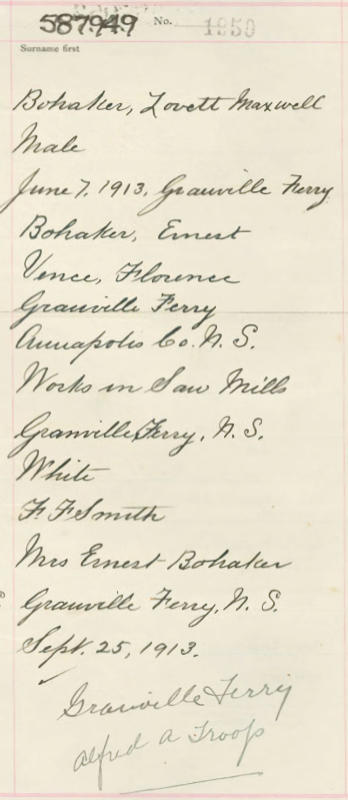 587949 No. 1950
Surname first
Bohaker, Lovett Maxwell
Male
June 7, 1913, Granville Ferry
Bohaker, Ernest
Vence, Florence
Granville Ferry
Annapolis Co. N. S.
Works in Saw Mills
Granville Ferry, N. S.
White
F. F Smith
Mrs Ernest Bohaker
Granville Ferry, N. S.
Sept. 25, 1913.
Granville Ferry
Alfred A Troop